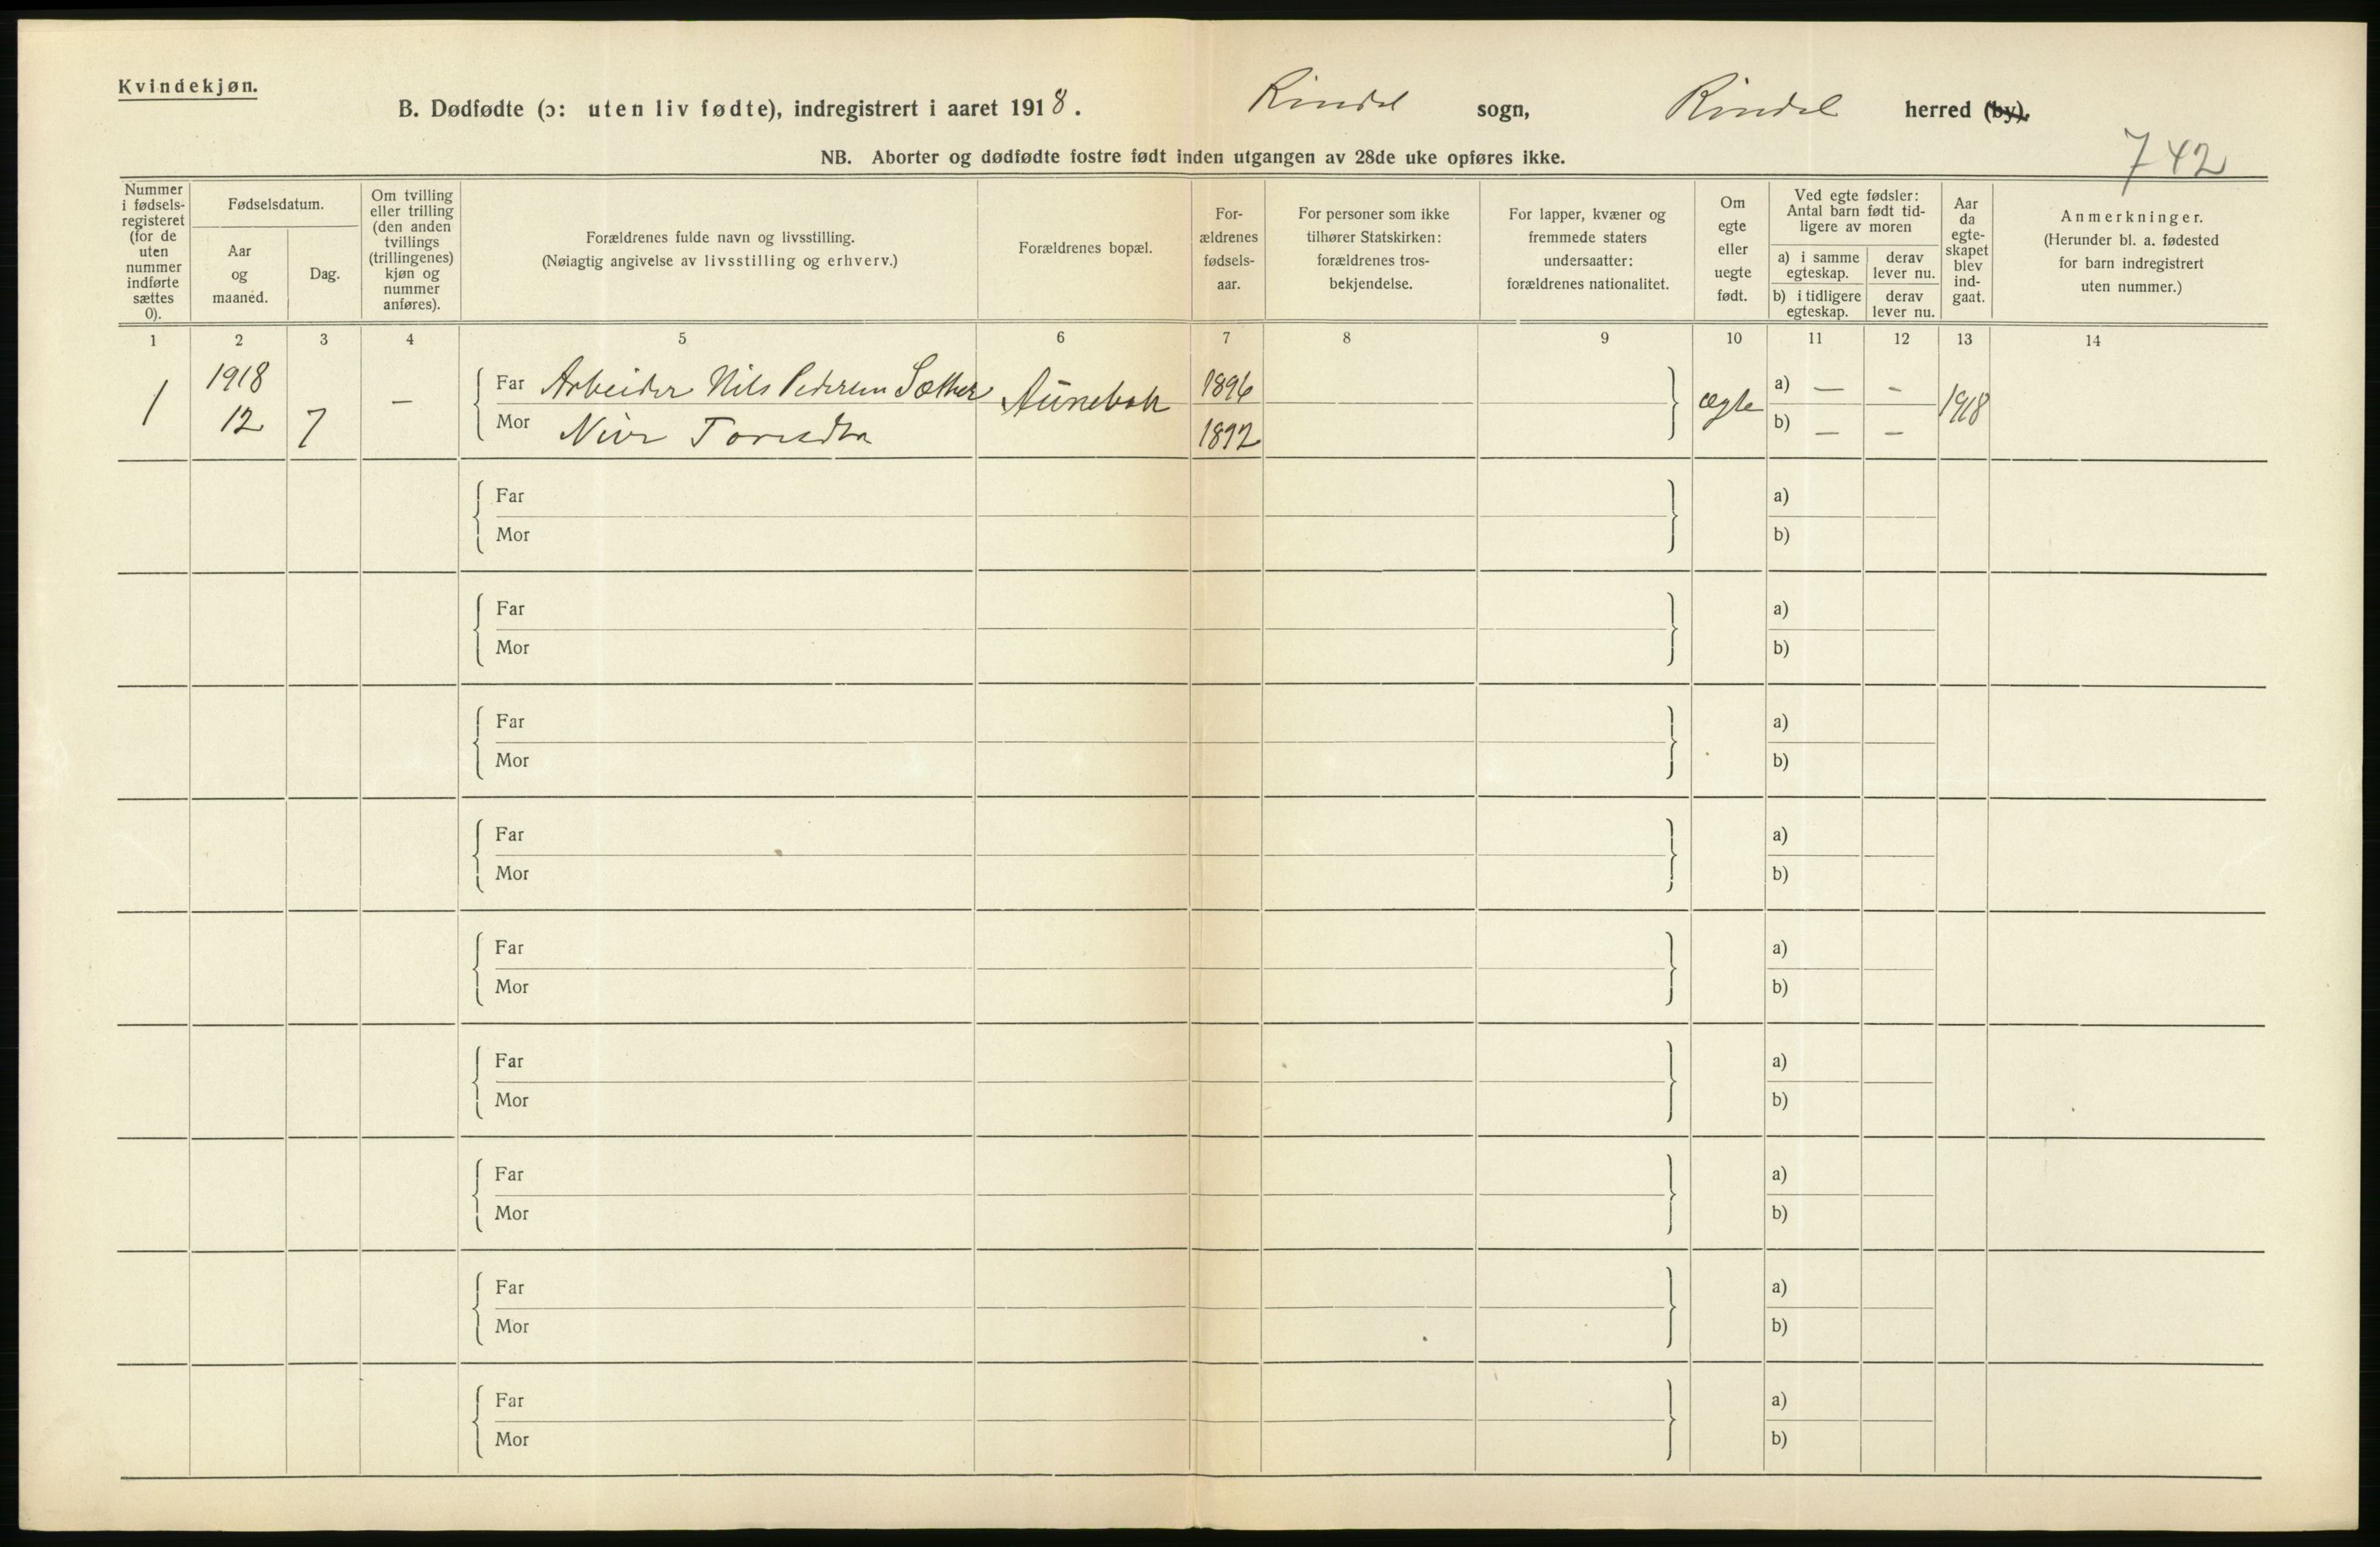 Kvindekjøn.
B. Dødfødte (ɔ: uten liv fødte), indregistrert i aaret 1918. Rindal sogn, Rindal herred (by).
NB. Aborter og dødfødte fostre født inden utgangen av 28de uke opføres ikke.
742
Nummer i fødsels-registeret (for de uten nummer indførte sættes 0).
Fødselsdatum.
Aar og maaned.
Dag.
Om tvilling eller trilling (den anden tvillings (trillingenes) kjøn og nummer anføres).
Forældrenes fulde navn og livsstilling.
(Nøiagtig angivelse av livsstilling og erhverv.)
Forældrenes bopæl.
For-ældrenes fødsels-aar.
For personer som ikke tilhører Statskirken: forældrenes tros-bekjendelse.
For lapper, kvæner og fremmede staters undersaatter: forældrenes nationalitet.
Om egte eller uegte født.
Ved egte fødsler: Antal barn født tid-ligere av moren
a) i samme egteskap.
derav lever nu.
b) i tidligere egteskap.
derav lever nu.
Aar da egte-skapet blev ind-gaat.
Anmerkninger.
(Herunder bl. a. fødested for barn indregistrert uten nummer.)
1 2 3 4 5 6 7 8 9 10 11 12 13 14
1 1918 12 7 —
Far Arbeider Nils Pedersen Sæther 1896 ægte a) — - 1918
Mor 1892 b) — —
Far a)
Mor b)
Far a)
Mor b)
Far a)
Mor b)
Far a)
Mor b)
Far a)
Mor b)
Far a)
Mor b)
Far a)
Mor b)
Far a)
Mor b)
Far a)
Mor b)